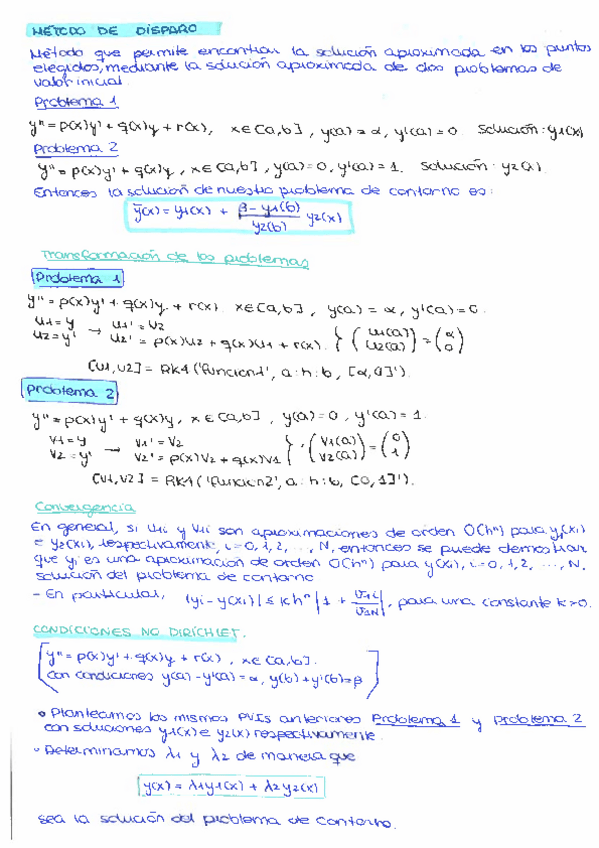 MÉTODO DE DISPARO
Método que permite encontrar la solución aproximada en los puntos
elegidos, mediante la solución aproximada de dos problemas de
valor inicial.
Problema 1
y'' = p(x)y' + q(x)y + r(x), x∈[a,b], y(a) = α, y'(a) = 0. Solución: y1(x)
Problema 2
y'' = p(x)y' + q(x)y, x∈[a,b], y(a) = 0, y'(a) = 1. Solución: y2(x).
Entonces la solución de nuestro problema de contorno es:
ỹ(x) = y1(x) + (β - y1(b))/y2(b) y2(x)
Transformación de los problemas
Problema 1
y'' = p(x)y' + q(x)y + r(x) x∈[a,b], y(a) = α, y'(a) = 0.
u1 = y → u1' = u2
u2 = y' u2' = p(x)u2 + q(x)u1 + r(x). } (u1(a) u2(a)) = (α 0)
[u1,u2] = RK4('funcion1', a:h:b, [α,0]').
Problema 2
y'' = p(x)y' + q(x)y, x∈[a,b], y(a) = 0, y'(a) = 1.
v1 = y → v1' = v2
v2 = y' v2' = p(x)v2 + q(x)v1 }, (v1(a) v2(a)) = (0 1)
[v1,v2] = RK4('funcion2', a:h:b, [0,1]').
Convergencia
En general, si u1i y v1i son aproximaciones de orden O(hⁿ) para y1(xi)
e y2(xi), respectivamente, i=0,1,2, ..., N, entonces se puede demostrar
que yi es una aproximación de orden O(hⁿ) para y(xi), i=0,1,2, ..., N,
solución del problema de contorno
- En particular, |yi - y(xi)| ≤ khⁿ |1 + v1i/v1N|, para una constante k>0.
CONDICIONES NO DIRICHLET.
y'' = p(x)y' + q(x)y + r(x), x∈[a,b].
con condiciones y(a) - y'(a) = α, y(b) + y'(b) = β
• Planteamos los mismos PVIs anteriores Problema 1 y Problema 2
con soluciones y1(x) e y2(x) respectivamente.
• Determinamos λ1 y λ2 de manera que
y(x) = λ1y1(x) + λ2y2(x)
sea la solución del problema de contorno.